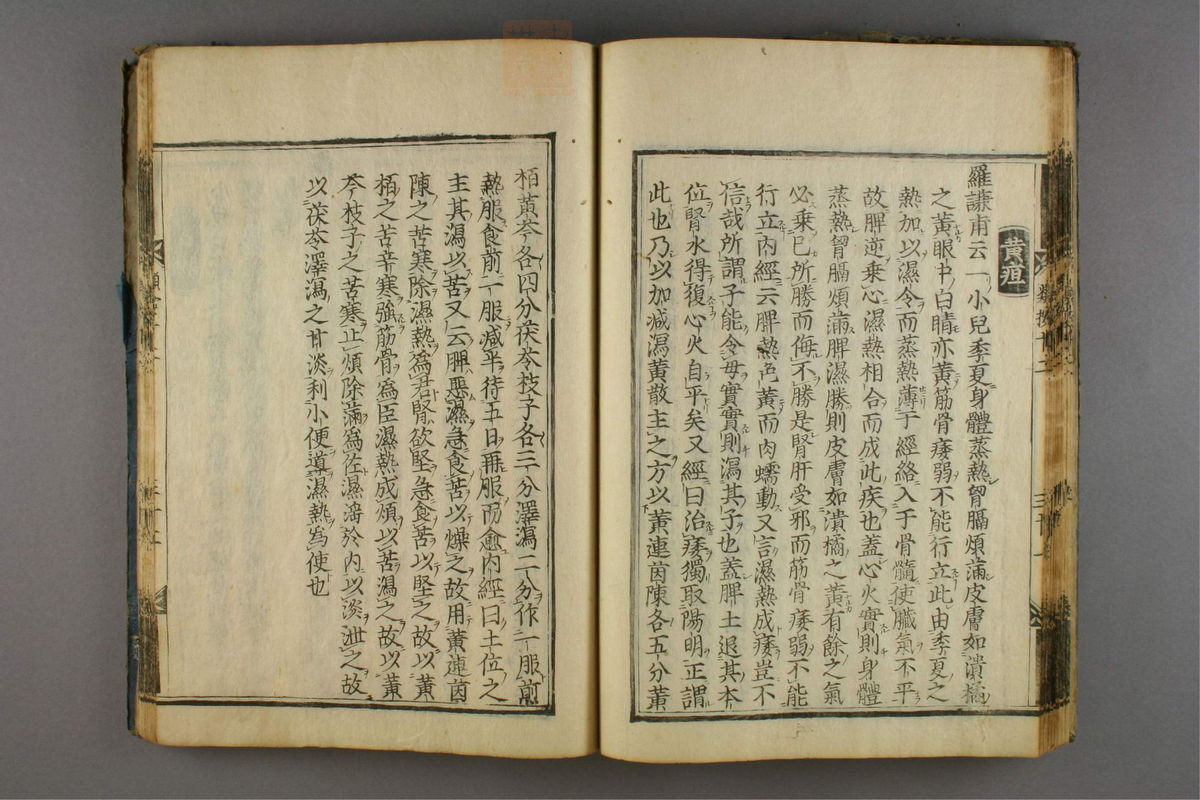 黄疸
羅謙甫云一小兒季夏身體蒸熱胷膈煩滿皮膚如漬橘
之黄眼中白睛亦黄筋骨痿弱不能行立此由季夏之
熱加以濕令而蒸熱薄于經絡入于骨髓使臟氣不平
故脾逆乗心濕熱相合而成此疾也蓋心火實則身體
蒸熱胷膈煩滿脾濕勝則皮膚如漬橘之黄有餘之氣
必乗已所勝而侮不勝是腎肝受邪而筋骨痿弱不能
行立内經云脾熱色黄而肉蠕動又言濕熱成痿豈不
信哉所謂子能令母實實則瀉其子也蓋脾土退其本
位腎水得復心火自平矣又經曰治痿獨取陽明正謂
此也乃以加减瀉黄散主之方以黄連茵陳各五分黄
栢黄芩各四分茯苓枝子各三分澤瀉二分作一服煎
熱服食前一服减半待五日再服而愈内經曰土位之
主其瀉以苦又云脾惡濕急食苦以燥之故用黄連茵
陳之苦寒除濕熱爲君腎欲堅急食苦以堅之故以黄
栢之苦辛寒強筋骨爲臣濕熱成煩以苦瀉之故以黄
芩枝子之苦寒止煩除滿爲佐濕滛於内以淡泄之故
以茯苓澤瀉之甘淡利小便導濕熱為使也